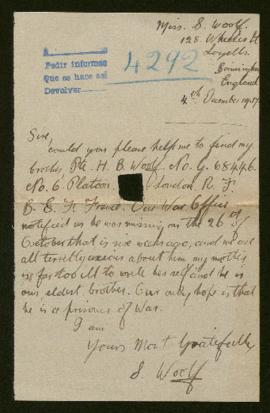 Miss. S. Woolf
128 Wheeler St
Lozells
Birmingham
England
4th December 1917
A
Pedir informes
Que se hace así
Devolver
4292
Sir,
Could you please help me to find my
brother, Pte H. B. Woolf. No. 68446.
No. 6. Platoon, London R. F.
B. E. F. France. Our War Office
notified us he was missing on the 26 of
October that is six weeks ago, and we are
all terribly anxious about him my mother
is far too ill to write herself and he is
our eldest brother. Our only hope is that
he is a prisoner of War.
I am
Yours Most Gratefully
S Woolf